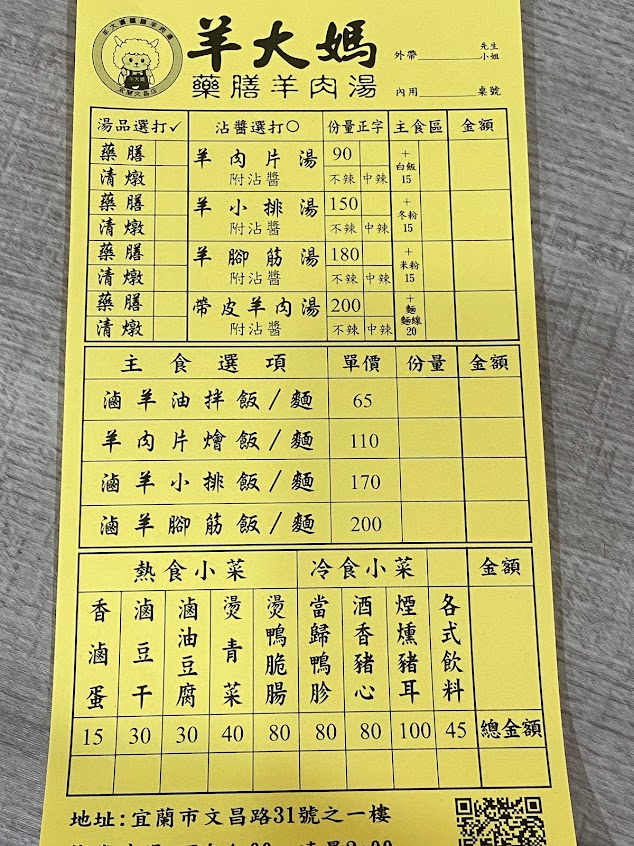 羊大媽
藥膳羊肉湯
外帶 先生 小姐
內用 桌號
湯品選打✓ 沾醬選打○ 份量正字 主食區 金額
藥膳 羊肉片湯 90 +白飯15
清燉 附沾醬 不辣 中辣
藥膳 羊小排湯 150 +冬粉15
清燉 附沾醬 不辣 中辣
藥膳 羊腳筋湯 180 +米粉15
清燉 附沾醬 不辣 中辣
藥膳 帶皮羊肉湯 200 +麵 麵線20
清燉 附沾醬 不辣 中辣
主食選項 單價 份量 金額
滷羊油拌飯/麵 65
羊肉片燴飯/麵 110
滷羊小排飯/麵 170
滷羊腳筋飯/麵 200
熱食小菜 冷食小菜 金額
香滷蛋 滷豆干 滷油豆腐 燙青菜 燙鴨脆腸 當歸鴨胗 酒香豬心 煙燻豬耳 各式飲料
15 30 30 40 80 80 80 100 45 總金額
地址:宜蘭市文昌路31號之一樓